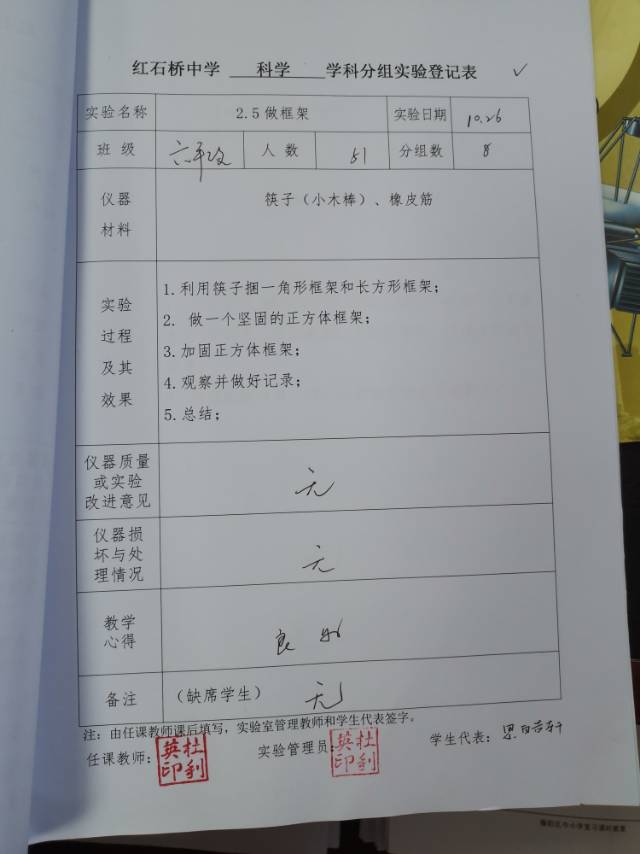 红石桥中学 科学 学科分组实验登记表 ✓
实验名称 2.5做框架 实验日期 10.26
班 级 六年级 人 数 51 分组数 8
仪器 筷子（小木棒）、橡皮筋
材料
实验
过程
及其
效果
1.利用筷子捆一角形框架和长方形框架；
2. 做一个坚固的正方体框架；
3.加固正方体框架；
4.观察并做好记录；
5.总结；
仪器质量
或实验
改进意见
无
仪器损
坏与处
理情况
无
教学
心得
良好
备注 （缺席学生） 无
注：由任课教师课后填写，实验室管理教师和学生代表签字。
任课教师： 杜利英印 实验管理员： 杜利英印 学生代表：